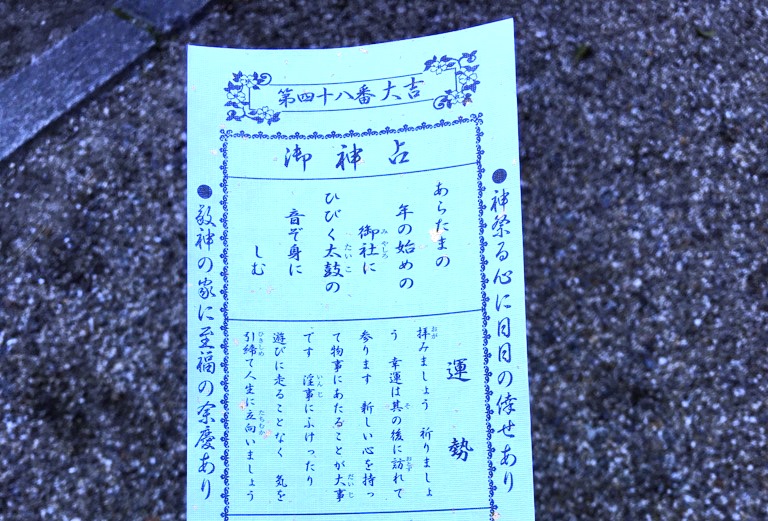 第四十八番 大吉
御神占
●神祭る心に日日の倖せあり
あらたまの
年の始めの
御社に
みやしろ
ひびく太鼓の
たいこ
音ぞ身に
しむ
運勢
拝みましょう 祈りましょ
おが
う 幸運は其の後に訪れて
そ
おとず
参ります 新しい心を持っ
て物事にあたることが大事
だいじ
です 淫事にふけったり
いんじ
遊びに走ることなく 気を
引締て人生に立向いましょう
ひきしめ
たちむか
●敬神の家に至福の余慶あり